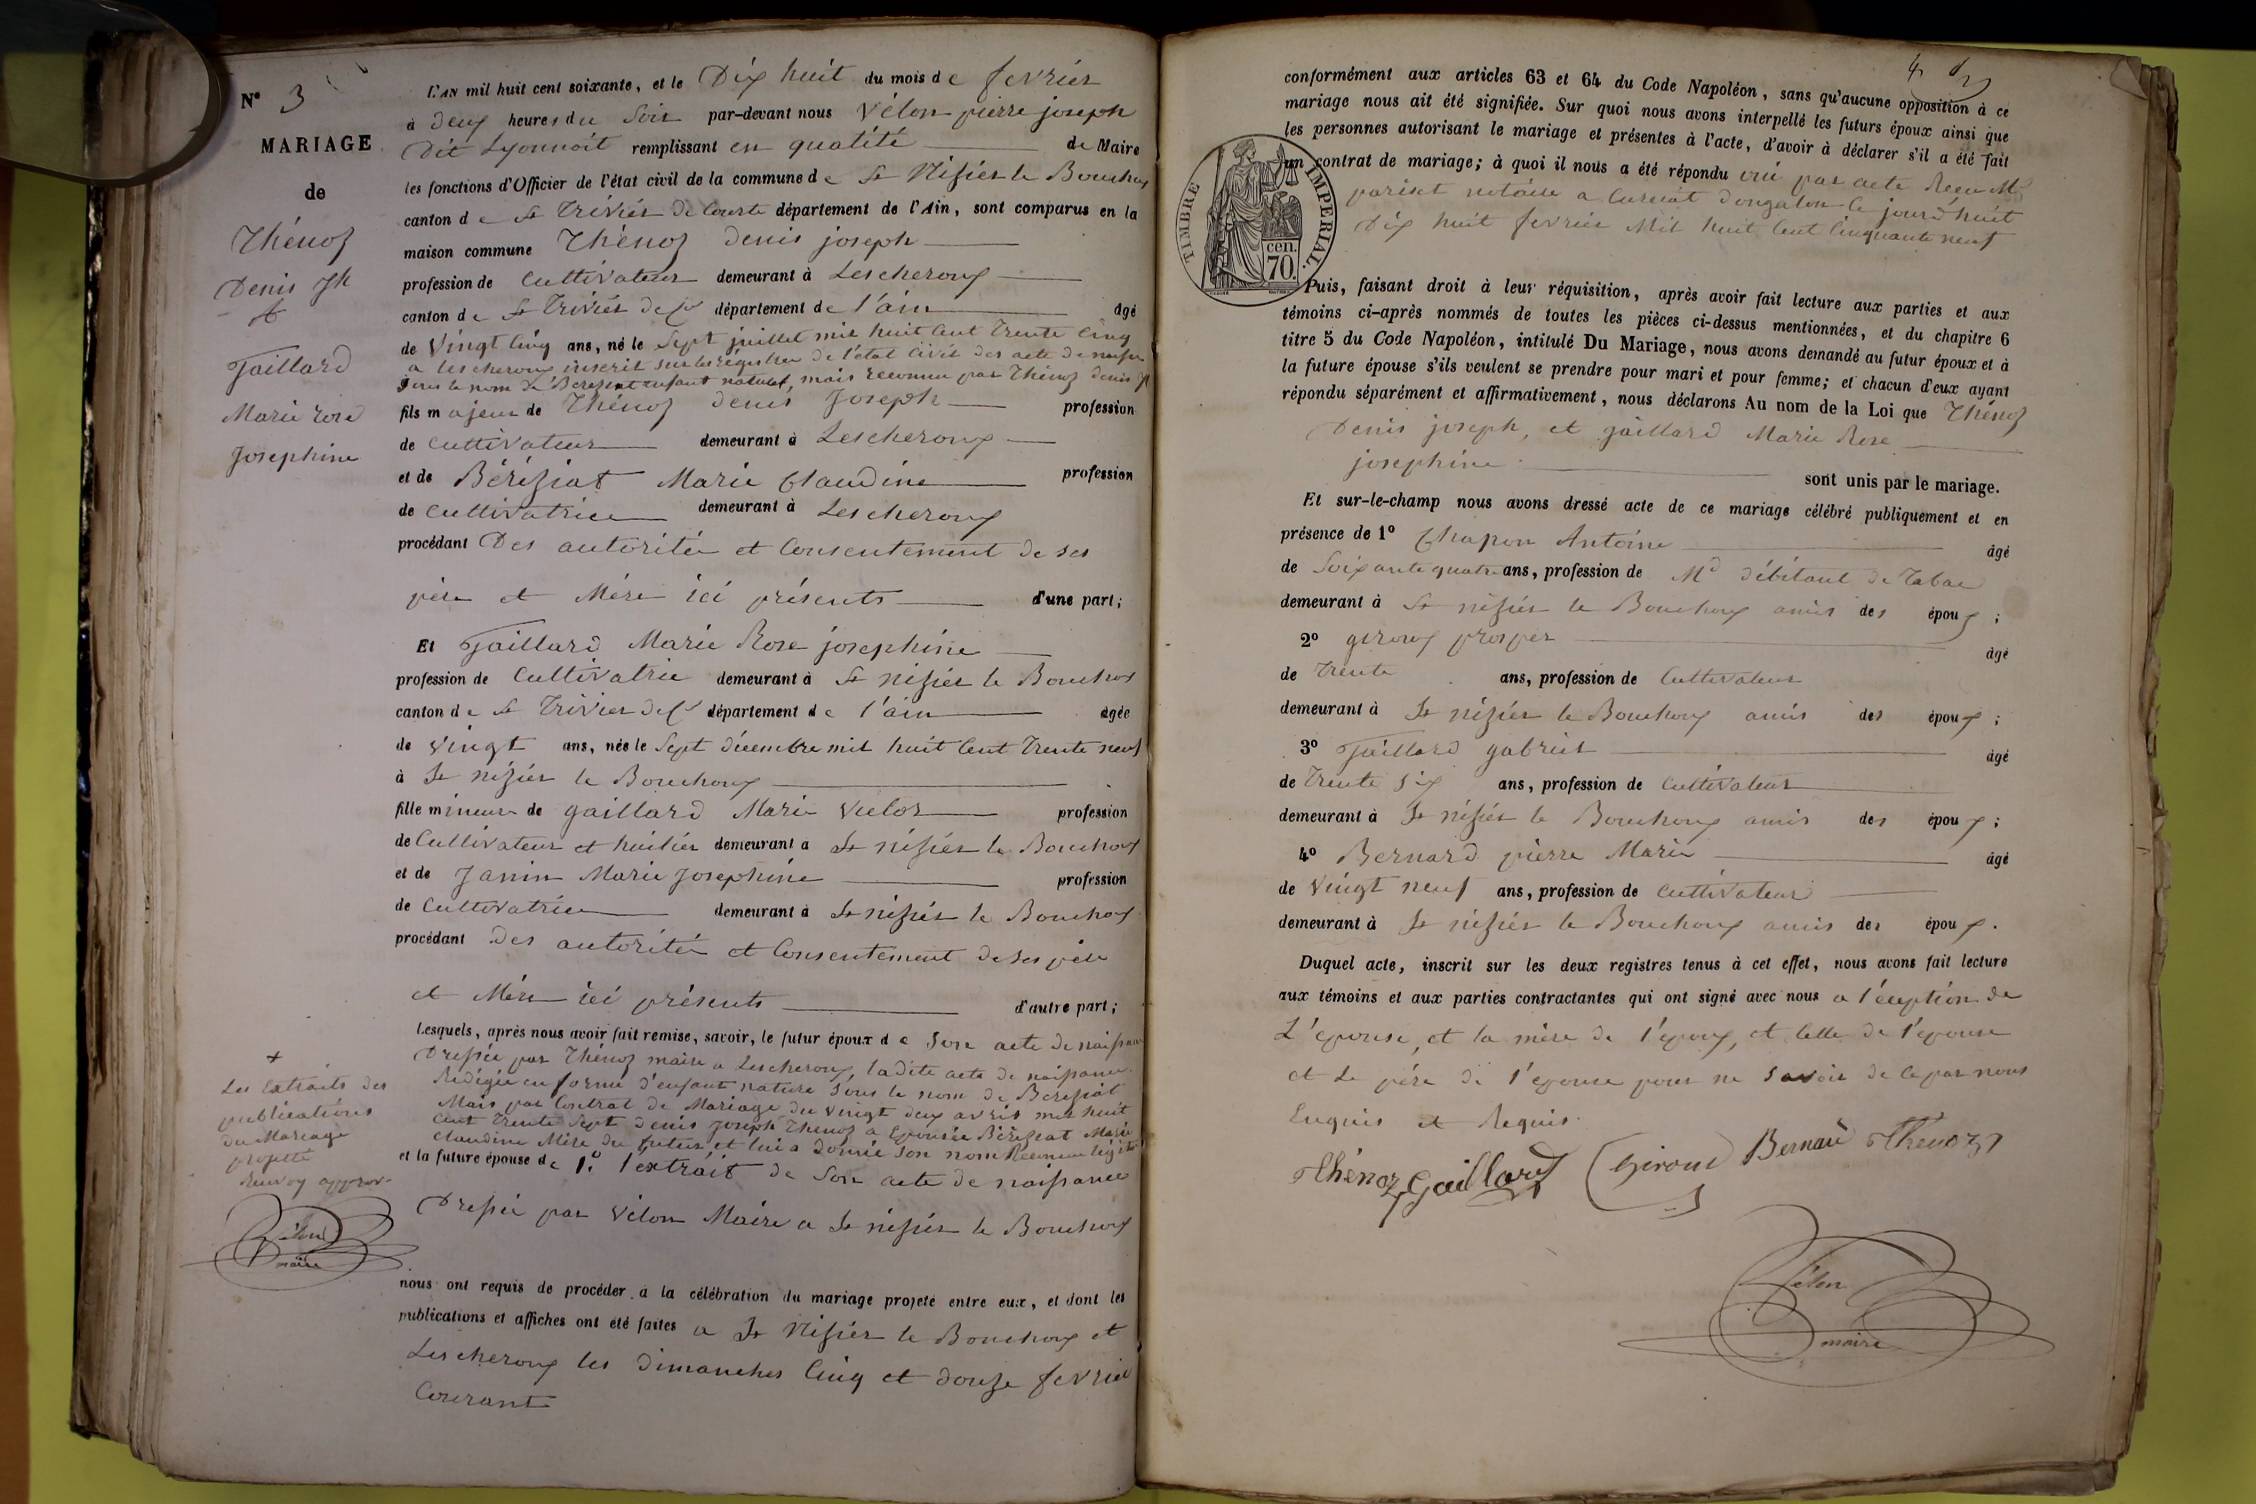 N° 3
MARIAGE
de
Thénoz
Denis Jh
&
Gaillard
Marie Rose
Josephine
L'AN mil huit cent soixante, et le Dix huit du mois de fevrier
à deux heures du Soir par-devant nous Vélon pierre joseph
Dit Lyonnoit remplissant en qualité de Maire
les fonctions d'Officier de l'état civil de la commune de St Nisier le Bouchoux
canton de St Trivier de Courte département de l'Ain, sont comparus en la
maison commune Thénoz denis joseph
profession de Cultivateur demeurant à Lescheroux
canton de St Trivier de Cs département de l'ain âgé
de Vingt Cinq ans, né le Sept juillet mil huit Cent Trente Cinq
a Lescheroux inscrit sur les régistre de l'état Civil des acte de naissa
sous le nom de Bereziat enfant naturel, mais reconnu par Thénoz denis Jh
fils majeur de Thénoz denis Joseph profession
de Cultivateur demeurant à Lescheroux
et de Béréziat Marie Claudine profession
de Cultivatrice demeurant à Lescheroux
procédant Des autoritée et Consentement de ses
père et Mère ici présents d'une part;
Et Gaillard Marie Rose josephine
profession de Cultivatric demeurant à St nizier le Bouchox
canton de St Trivier de Cs département de l'ain âgée
de Vingt ans, née le Sept décembre mil huit Cent Trente neuf
à St nizier le Bouchoux
fille mineure de gaillard Marie Victor profession
de Cultivateur et huilier demeurant a St nizier le Bouchoux
et de Janin Marie Josephine profession
de Cultivatrice demeurant à St nizier le Bouchoux
procédant des autoritée et Consentement de ses père
et Mère ici présents d'autre part;
Lesquels, après nous avoir fait remise, savoir, le futur époux de Son acte de naissan
Dressée par Thénoz maire a Lescheroux, ladite acte de naissance
Redigée en forme d'enfant nature Sous le nom de Bereziat
Mais par Contrat de Mariage du vingt deux avril mil huit
Cent Trente Sept denis Joseph Thénoz a Epousée Béréziat Marie
Claudine Mère du futur et lui a donnée Son nom Reconnu
et la future épouse de 1° l'extrait de Son acte de naissance
Dressée par Vélon Maire a St nizier le Bouchoux
+
Les Extraits des
publications
du Mariage
projetté
Renvoy approv.
Vélon
maire
nous ont requis de procéder à la célébration du mariage projeté entre eux, et dont les
publications et affiches ont été faites a St Nizier le Bouchoux et
Lescheroux les dimanches Cinq et douze fevrier
Courant
4
conformément aux articles 63 et 64 du Code Napoléon, sans qu'aucune opposition à ce
mariage nous ait été signifiée. Sur quoi nous avons interpellé les futurs époux ainsi que
les personnes autorisant le mariage et présentes à l'acte, d'avoir à déclarer s'il a été fait
un contrat de mariage; à quoi il nous a été répondu oui par acte Recu Me
pariset notaire a Curciat dongalon le jourd'huit
Dix huit fevrier Mil huit Cent Cinquante neuf
TIMBRE IMPERIAL.
70. cen.
Puis, faisant droit à leur réquisition, après avoir fait lecture aux parties et aux
témoins ci-après nommés de toutes les pièces ci-dessus mentionnées, et du chapitre 6
titre 5 du Code Napoléon, intitulé Du Mariage, nous avons demandé au futur époux et à
la future épouse s'ils veulent se prendre pour mari et pour femme; et chacun d'eux ayant
répondu séparément et affirmativement, nous déclarons Au nom de la Loi que Thénoz
Denis joseph, et gaillard Marie Rose
josephine sont unis par le mariage.
Et sur-le-champ nous avons dressé acte de ce mariage célébré publiquement et en
présence de 1° Chapon Antoine âgé
de Soixante quatre ans, profession de Md débitant de Tabac
demeurant à St nizier le Bouchoux amis des époux;
2° giroux prosper âgé
de Trente ans, profession de Cultivateur
demeurant à St nizier le Bouchoux amis des époux;
3° Gaillard gabriel âgé
de Trente Six ans, profession de Cultivateur
demeurant à St nizier le Bouchoux amis des époux;
4° Bernard pierre Marie âgé
de Vingt neuf ans, profession de Cultivateur
demeurant à St nizier le Bouchoux amis des époux.
Duquel acte, inscrit sur les deux registres tenus à cet effet, nous avons fait lecture
aux témoins et aux parties contractantes qui ont signé avec nous a l'éxeption de
L'épouse, et la mère de l'époux, et Celle de l'epouse
et Le père de l'epouse pour ne Savoir de Ce par nous
Enquis et Requis.
Thénoz Gaillard Giroud Bernard Thénoz
Vélon
maire